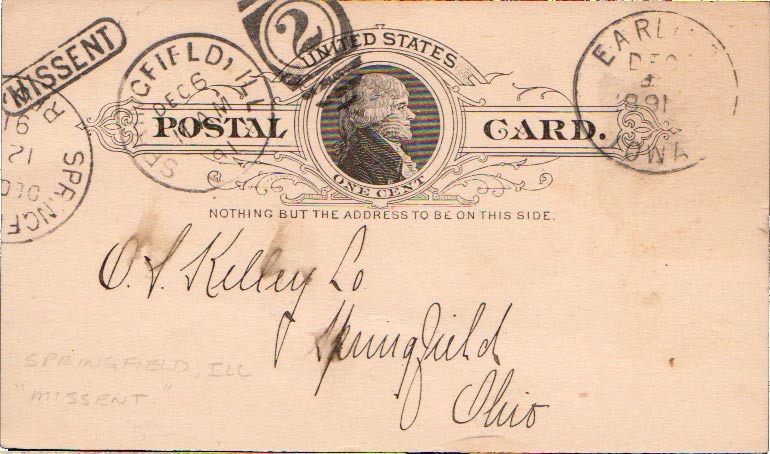 MISSENT
SPRINGFIELD, ILL.
DEC 6
AM
91
2
UNITED STATES
POSTAL CARD.
ONE CENT
NOTHING BUT THE ADDRESS TO BE ON THIS SIDE.
EARL
DEC
1891
IOWA
SPRINGF
DEC
12
91
R
O. S. Kelley Co
Springfield
Ohio
SPRINGFIELD, ILL
"MISSENT."